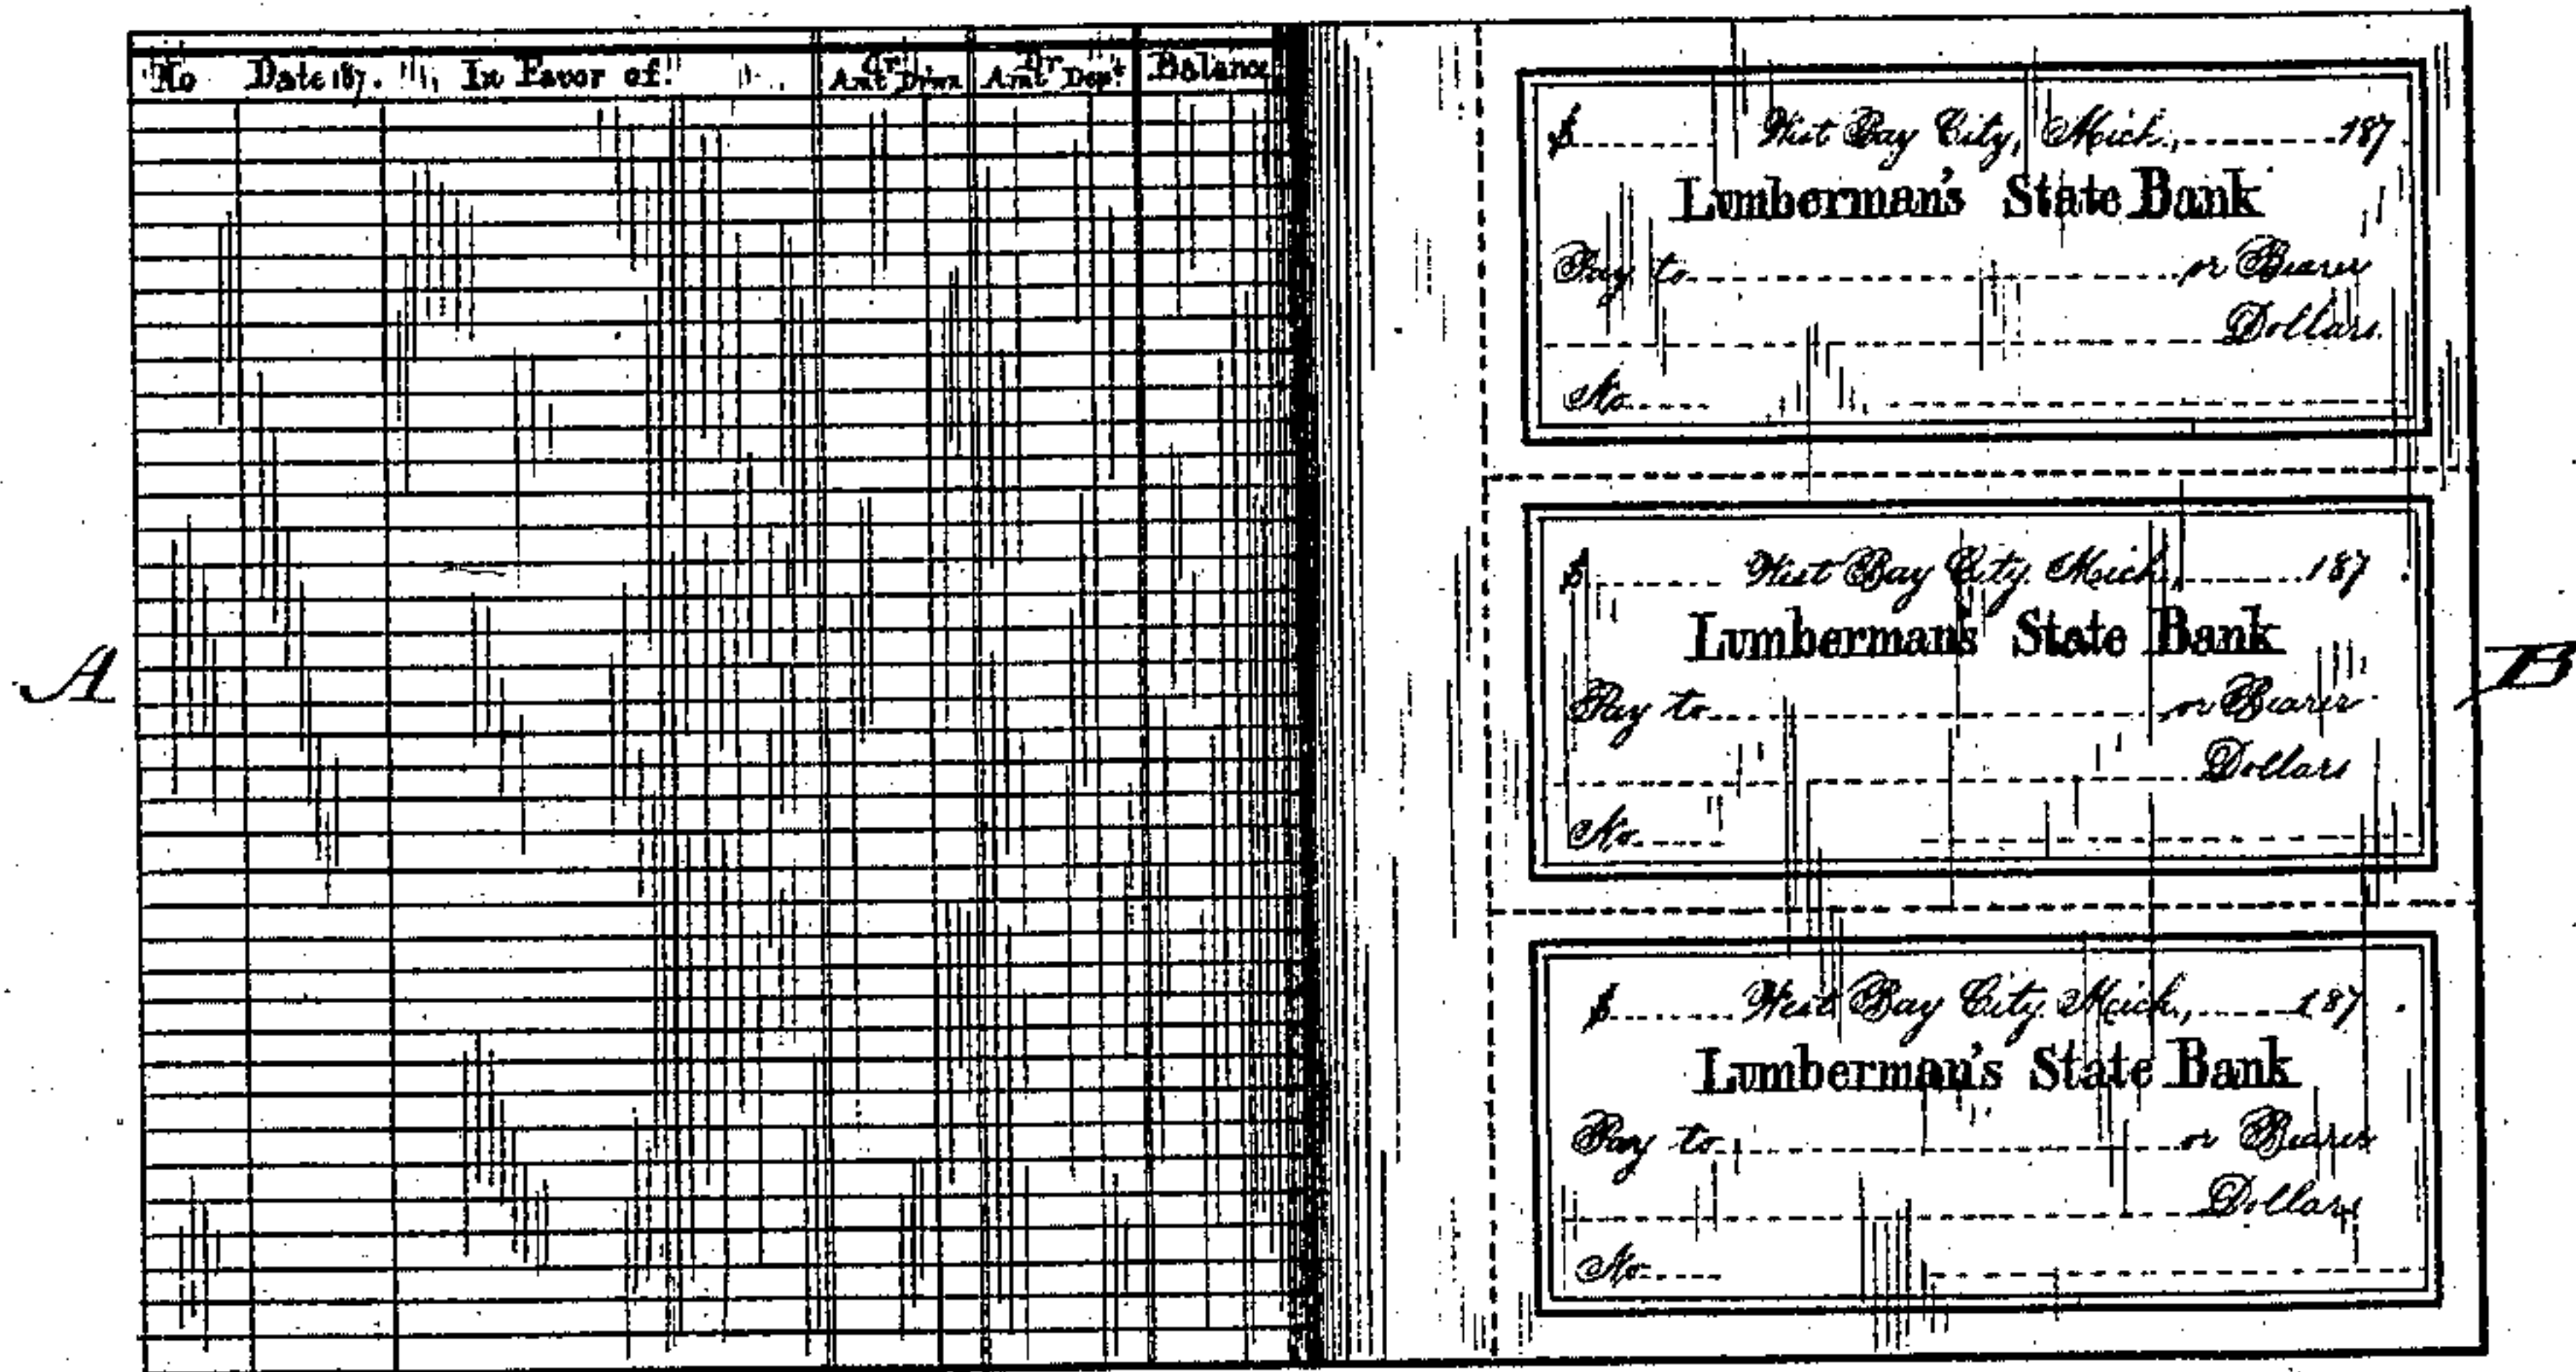 No Date 187 . In Favor of. Cr. Amt Drwn Dr. Amt Dept Balance
$ West Bay City, Mich., 187
Lumberman's State Bank
Pay to or Bearer
Dollars.
No.
A
$ West Bay City, Mich., 187 .
Lumberman's State Bank
Pay to or Bearer
Dollars
No.
B
$ West Bay City, Mich., 187 .
Lumberman's State Bank
Pay to or Bearer
Dollars
No.